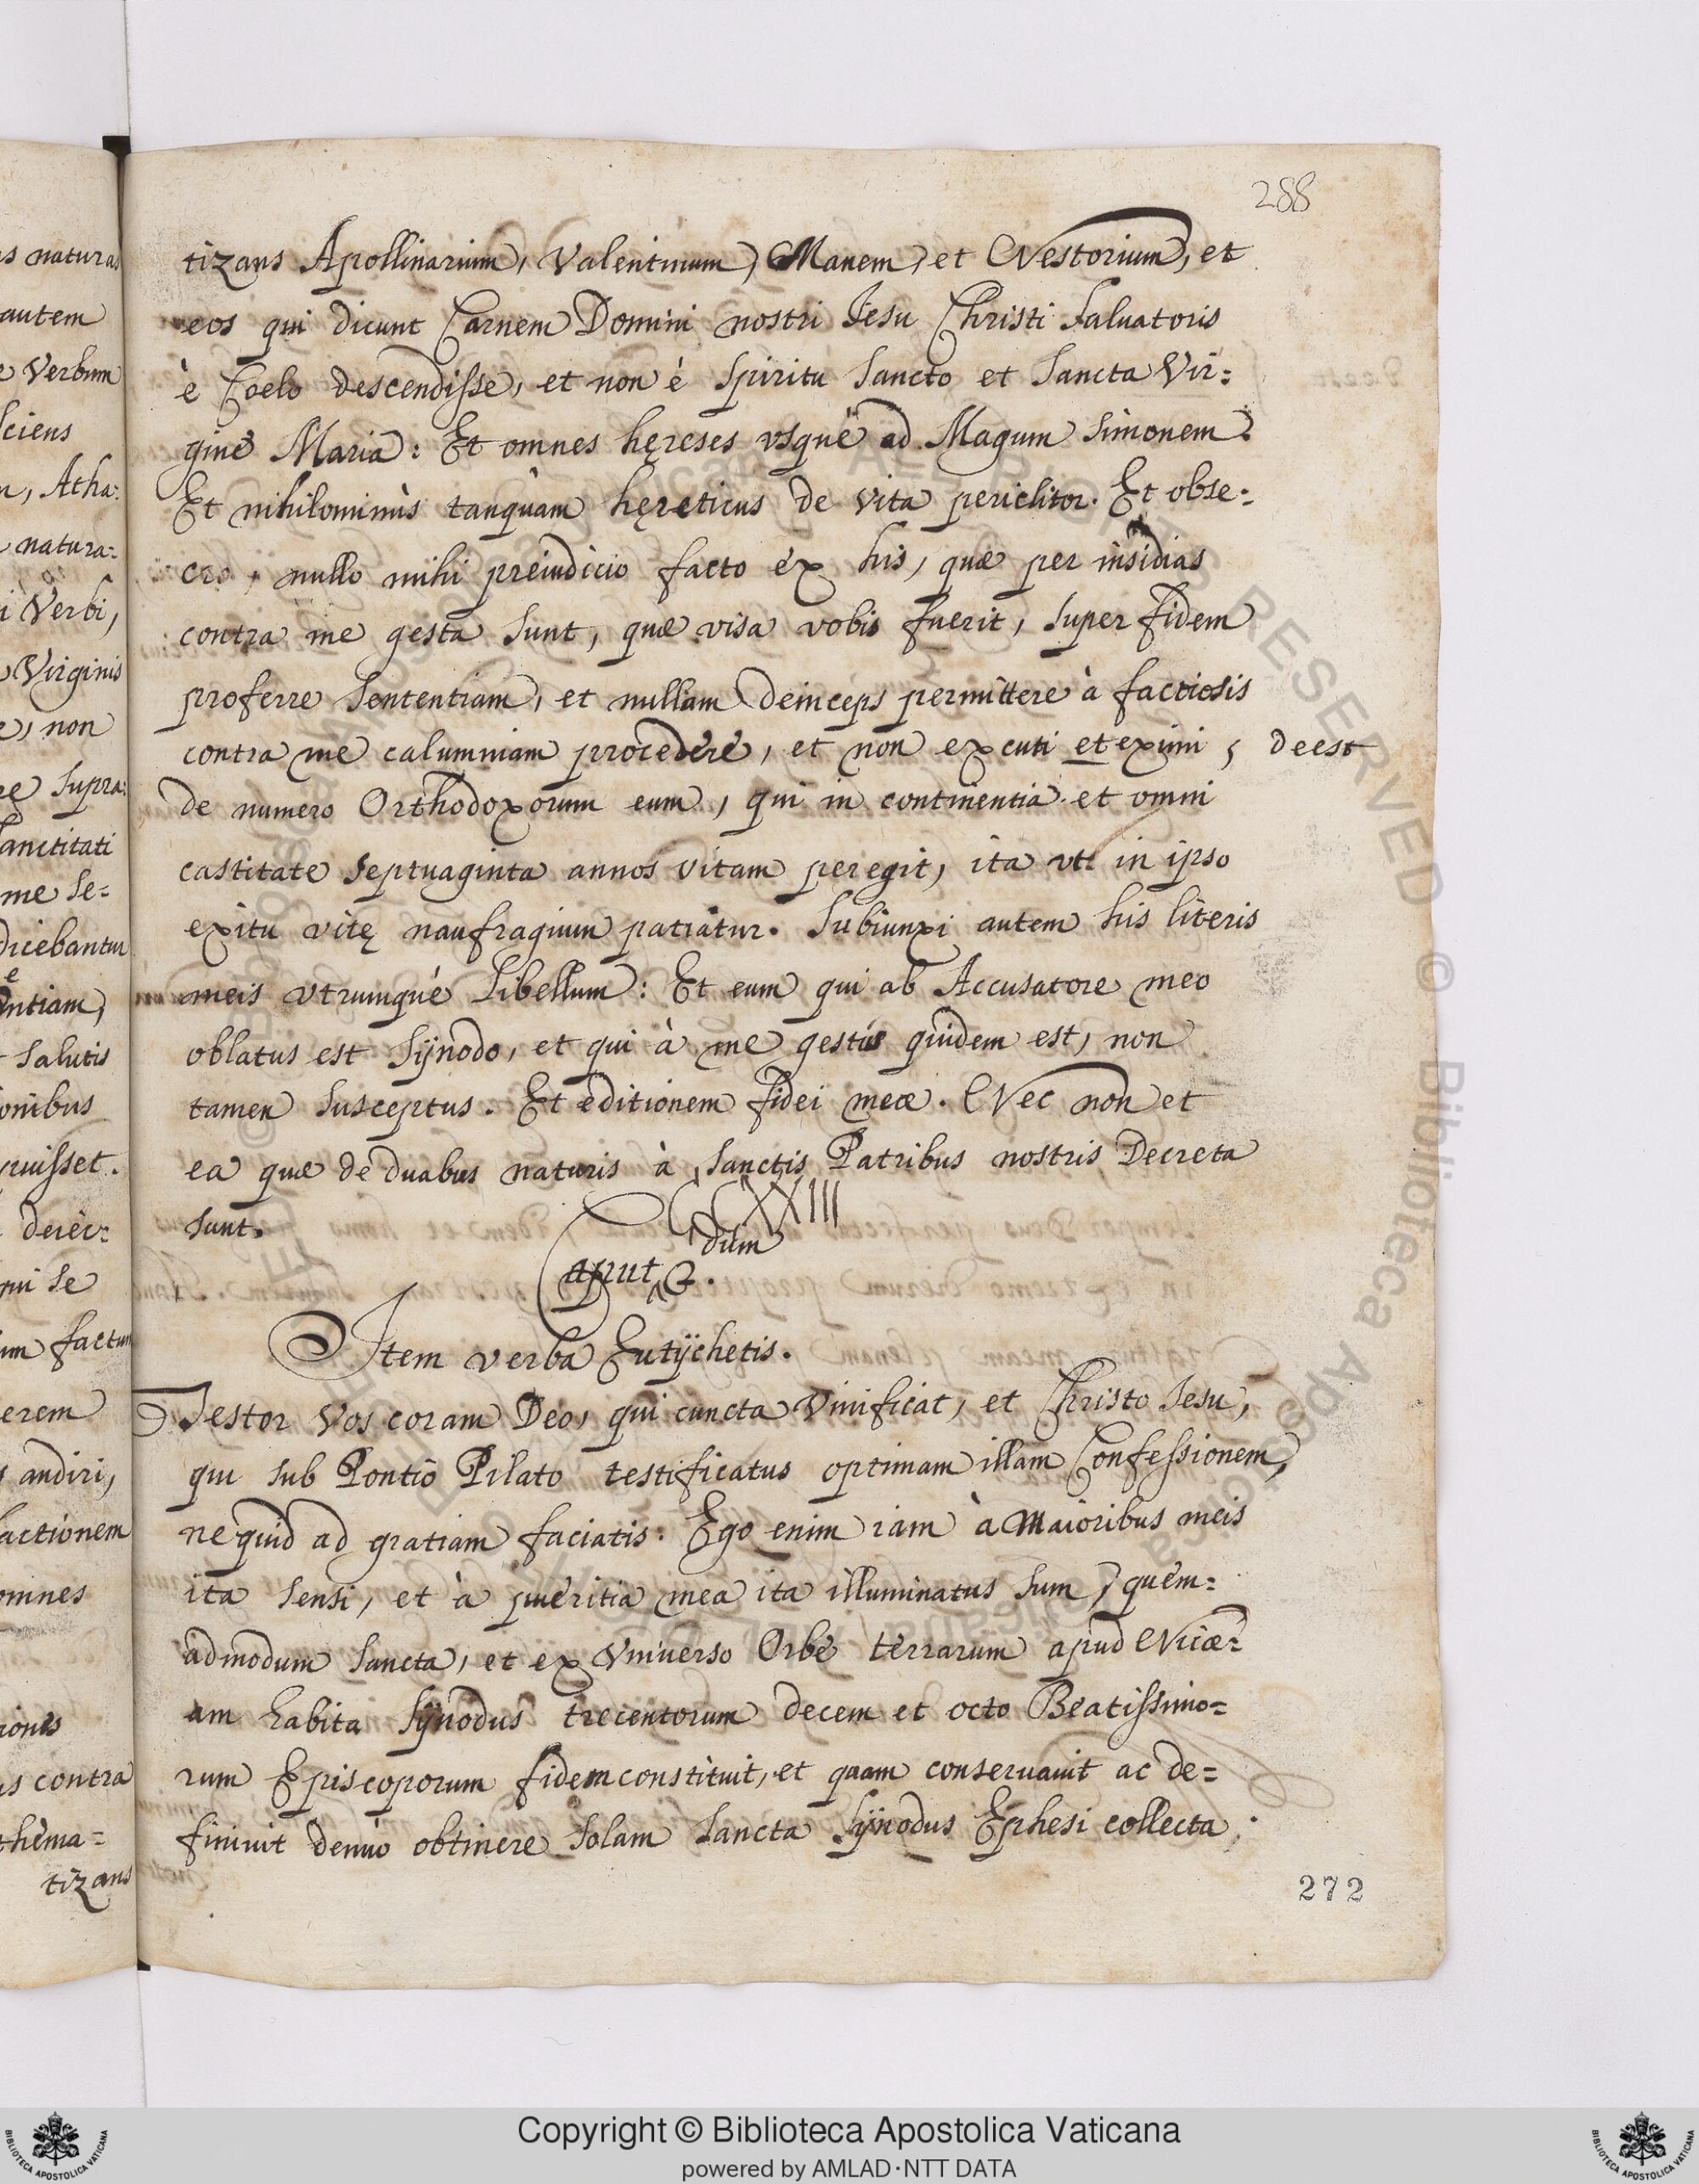 288
tizans Apollinarium, Valentinum, Manem, et Nestorium, et
eos qui dicunt Carnem Domini nostri Iesu Christi Saluatoris
è Coelo descendisse, et non è Spiritu Sancto et Sancta Vir=
gine Maria: Et omnes hęreses vsque ad Magum Simonem.
Et nihilominùs tanquàm hęreticus de vita periclitor. Et obse=
cro, nullo mihi preiudicio facto ex his, quæ per insidias
contra me gesta sunt, quæ visa vobis fuerit, super fidem
proferre Sententiam, et nullam deinceps permittere à factiosis
contra me calumniam procedere, et non excuti et eximi, deest
de numero Orthodoxorum eum, qui in continentia et omni
castitate Septuaginta annos vitam peregit, ita vt in ipso
exitu vitę naufragium patiatur. Subiunxi autem his literis
meis vtrumque Libellum: Et eum qui ab Accusatore meo
oblatus est Sÿnodo, et qui à me gestus quidem est, non
tamen susceptus. Et editionem fidei meæ. Nec non et
ea quæ de duabus naturis à Sanctis Patribus nostris Decreta
sunt.
CCXXIII
Caput 2.dum
Item verba Eutÿchetis.
Testor Vos coram Deo, qui cuncta Viuificat, et Christo Iesu,
qui sub Pontio Pilato testificatus optimam illam Confessionem,
ne quid ad gratiam faciatis. Ego enim iam à Maioribus meis
ita sensi, et à pueritia mea ita illuminatus sum, quem=
admodum Sancta, et ex Vniuerso Orbe terrarum apud Nicæ=
am habita Sÿnodus trecentorum decem et octo Beatissimo=
rum Episcoporum fidem constituit, et quam conseruauit ac de=
finiuit denuo obtinere solam Sancta Sÿnodus Ephesi collecta.
272
s natura
autem
Verbum
ciens
Atha=
natura=
i Verbi,
Virginis
non
Supra=
Sanctitati
me Se=
dicebantur
entiam,
Salutis
onibus
uisset.
qui se
factum
erem
audiri,
actionem
omnes
contra
thema=
tizans
Copyright © Biblioteca Apostolica Vaticana
powered by AMLAD·NTT DATA